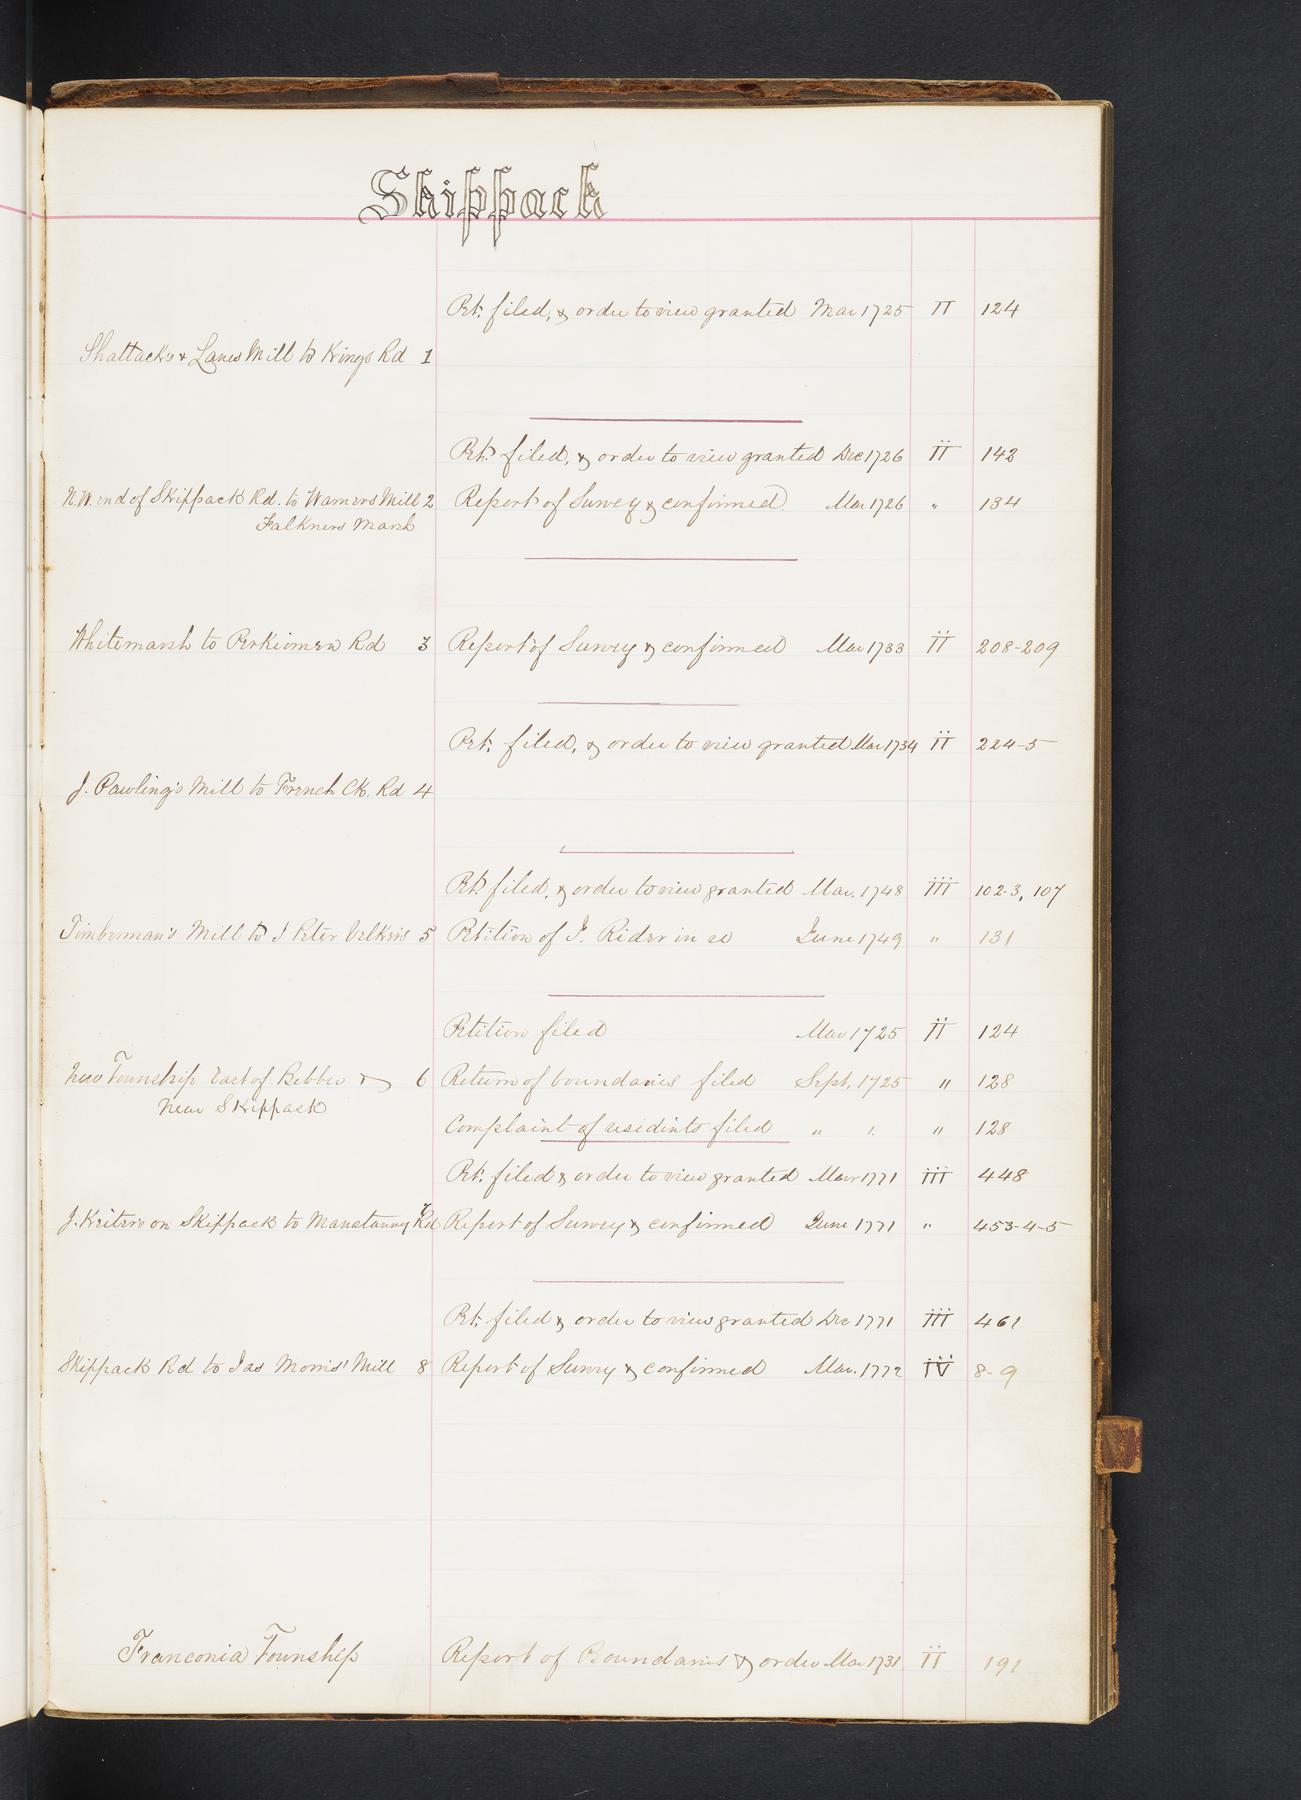 Skippack
Pet. filed, & order to view granted Mar 1725 II 124
Shattacks & Lanes Mill to Kings Rd 1
Pet. filed, & order to view granted Dec 1726 II 142
N.W. end of Skippack Rd. to Warners Mill 2 Report of Survey & confirmed Mar 1726 " 134
Falkners Marsh
Whitemarsh to Perkiomen Rd 3 Report of Survey & confirmed Mar 1733 II 208-209
Pet. filed, & order to view granted Mar 1734 II 224-5
J. Pawling's Mill to French Ck. Rd 4
Pet. filed, & order to view granted Mar. 1748 III 102-3, 107
Timberman's Mill to J Peter 5 Petition of J. Rider in June 1749 " 131
Petition filed Mar 1725 II 124
New Township East of Bebber & 6 Return of boundaries filed Sept. 1725 " 128
near Skippack
Complaint of residents filed " " " 128
Pet. filed & order to view granted Mar 1771 III 448
J. Keiter's on Skippack to Manatawny Rd 7 Report of Survey & confirmed June 1771 " 453-4-5
Pet. filed & order to view granted Dec 1771 III 461
Skippack Rd to Jas Morris' Mill 8 Report of Survey & confirmed Mar. 1772 IV 8-9
Franconia Township Report of Boundaries & order Mar 1731 II 191